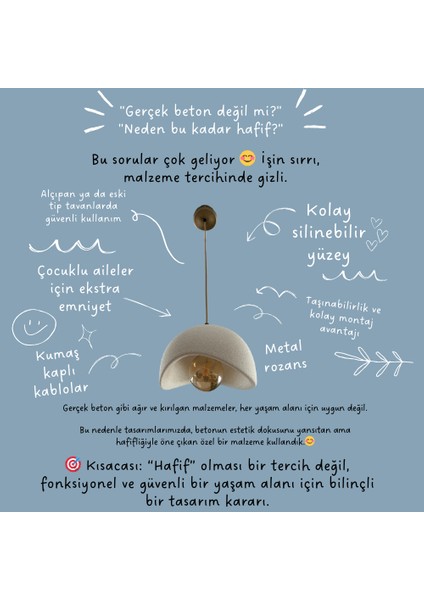 "Gerçek beton değil mi?"
"Neden bu kadar hafif?"
Bu sorular çok geliyor 😊 İşin sırrı,
malzeme tercihinde gizli.
Alçıpan ya da eski
tip tavanlarda
güvenli kullanım
Kolay
silinebilir
yüzey
Çocuklu aileler
için ekstra
emniyet
Taşınabilirlik ve
kolay montaj
avantajı
Kumaş
kaplı
kablolar
Metal
rozans
Gerçek beton gibi ağır ve kırılgan malzemeler, her yaşam alanı için uygun değil.
Bu nedenle tasarımlarımızda, betonun estetik dokusunu yansıtan ama
hafifliğiyle öne çıkan özel bir malzeme kullandık.😊
🎯 Kısacası: "Hafif" olması bir tercih değil,
fonksiyonel ve güvenli bir yaşam alanı için bilinçli
bir tasarım kararı.